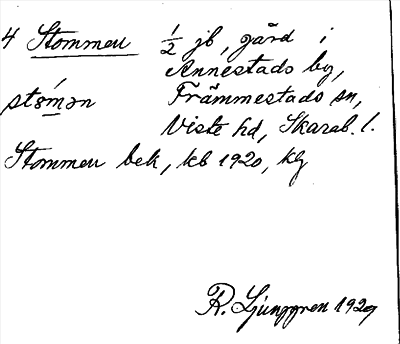 4 Stommen ½ jb, gård i
Annestads by,
stómən Främmestads sn,
Viste hd, Skarab. l.
Stommen bek, kb 1920, kg
R. Ljunggren 1929